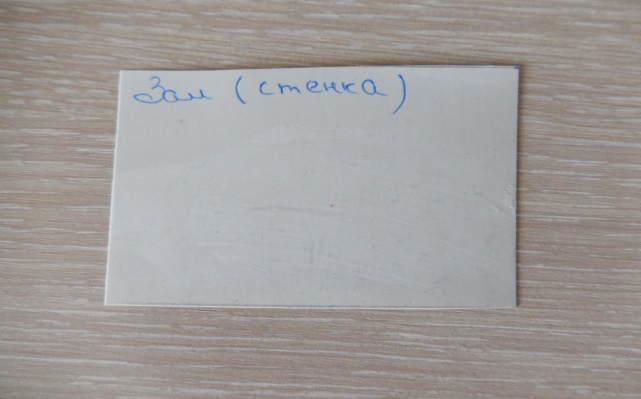 Зал (стенка)